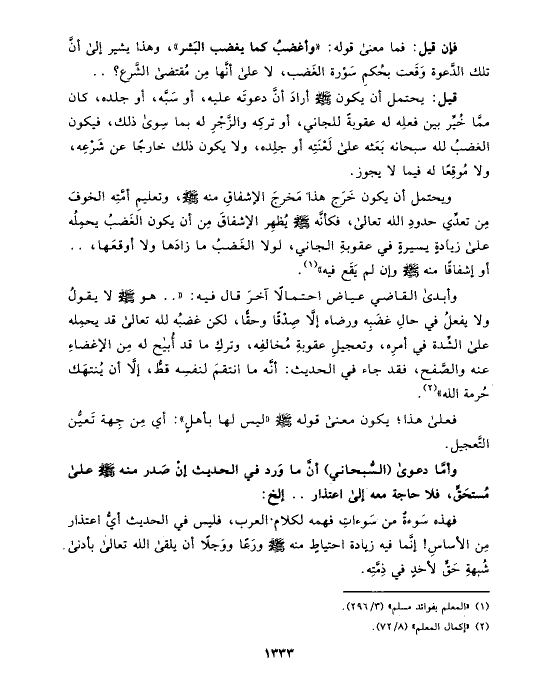 فإن قيل: فما معنىٰ قوله: «وأغضبُ كما يغضب البَشر»، وهذا يشير إلىٰ أنَّ
تلك الدَّعوة وَقَعت بحُكمِ سَوْرة الغَضب، لا علىٰ أنَّها مِن مُقتضىٰ الشَّرع؟ ..
قيل: يحتمل أن يكون ﷺ أرادَ أنَّ دعوتَه عليه، أو سَبَّه، أو جلدَه، كان
ممَّا خُيِّر بين فعلِه له عقوبةً للجاني، أو تركِه والزَّجْرِ له بما سِوىٰ ذلك، فيكون
الغضبُ لله سبحانه بَعَثه علىٰ لَعْنَتِه أو جلدِه، ولا يكون ذلك خارجًا عن شَرْعِه،
ولا مُوقِعًا له فيما لا يجوز.
ويحتمل أن يكون خَرَج هذا مَخرجَ الإشفاقِ منه ﷺ، وتعليم أمَّتِه الخوفَ
مِن تعدِّي حدودِ الله تعالىٰ، فكأنَّه ﷺ يُظهِر الإشفاقَ مِن أن يكون الغَضبُ يحمِلُه
علىٰ زيادةٍ يسيرةٍ في عقوبةِ الجاني، لولا الغَضبُ ما زادَها ولا أوقعَها، ..
أو إشفاقًا منه ﷺ وإن لم يَقَع فيه»(١).
وأبدىٰ القاضي عياض احتمالًا آخرَ قال فيه: «.. هو ﷺ لا يقولُ
ولا يفعلُ في حالِ غضَبِه ورضاه إلَّا صِدْقًا وحقًّا، لكن غضبُه لله تعالىٰ قد يحمِله
علىٰ الشِّدة في أمرِه، وتعجيلِ عقوبةِ مُخالفِه، وتركِ ما قد أُبيْح له مِن الإغضاءِ
عنه والصَّفحِ، فقد جاء في الحديث: أنَّه ما انتقمَ لنفسِه قطُّ، إلَّا أن يُنتهَك
حُرمة الله»(٢).
فعلىٰ هذا؛ يكون معنىٰ قوله ﷺ «ليس لها بأهلٍ»: أي مِن جِهة تَعيُّن
التَّعجيل.
وأمَّا دعوىٰ (السُّبحاني) أنَّ ما وَرد في الحديث إنْ صَدر منه ﷺ علىٰ
مُستحَقٍّ، فلا حاجة معه إلىٰ اعتذار .. إلخ:
فهذه سَوءةٌ من سَوءاتِ فهمِه لكلام العرب، فليس في الحديث أيُّ اعتذار
مِن الأساسِ! إنَّما فيه زيادة احتياطٍ منه ﷺ ورَعًا ووَجلًا أن يلقىٰ الله تعالىٰ بأدنىٰ
شُبهةِ حَقٍّ لأحدٍ في ذِمَّتِه.
(١) «المعلم بفوائد مسلم» (٢٩٦/٣).
(٢) «إكمال المعلم» (٧٢/٨).
١٣٣٣